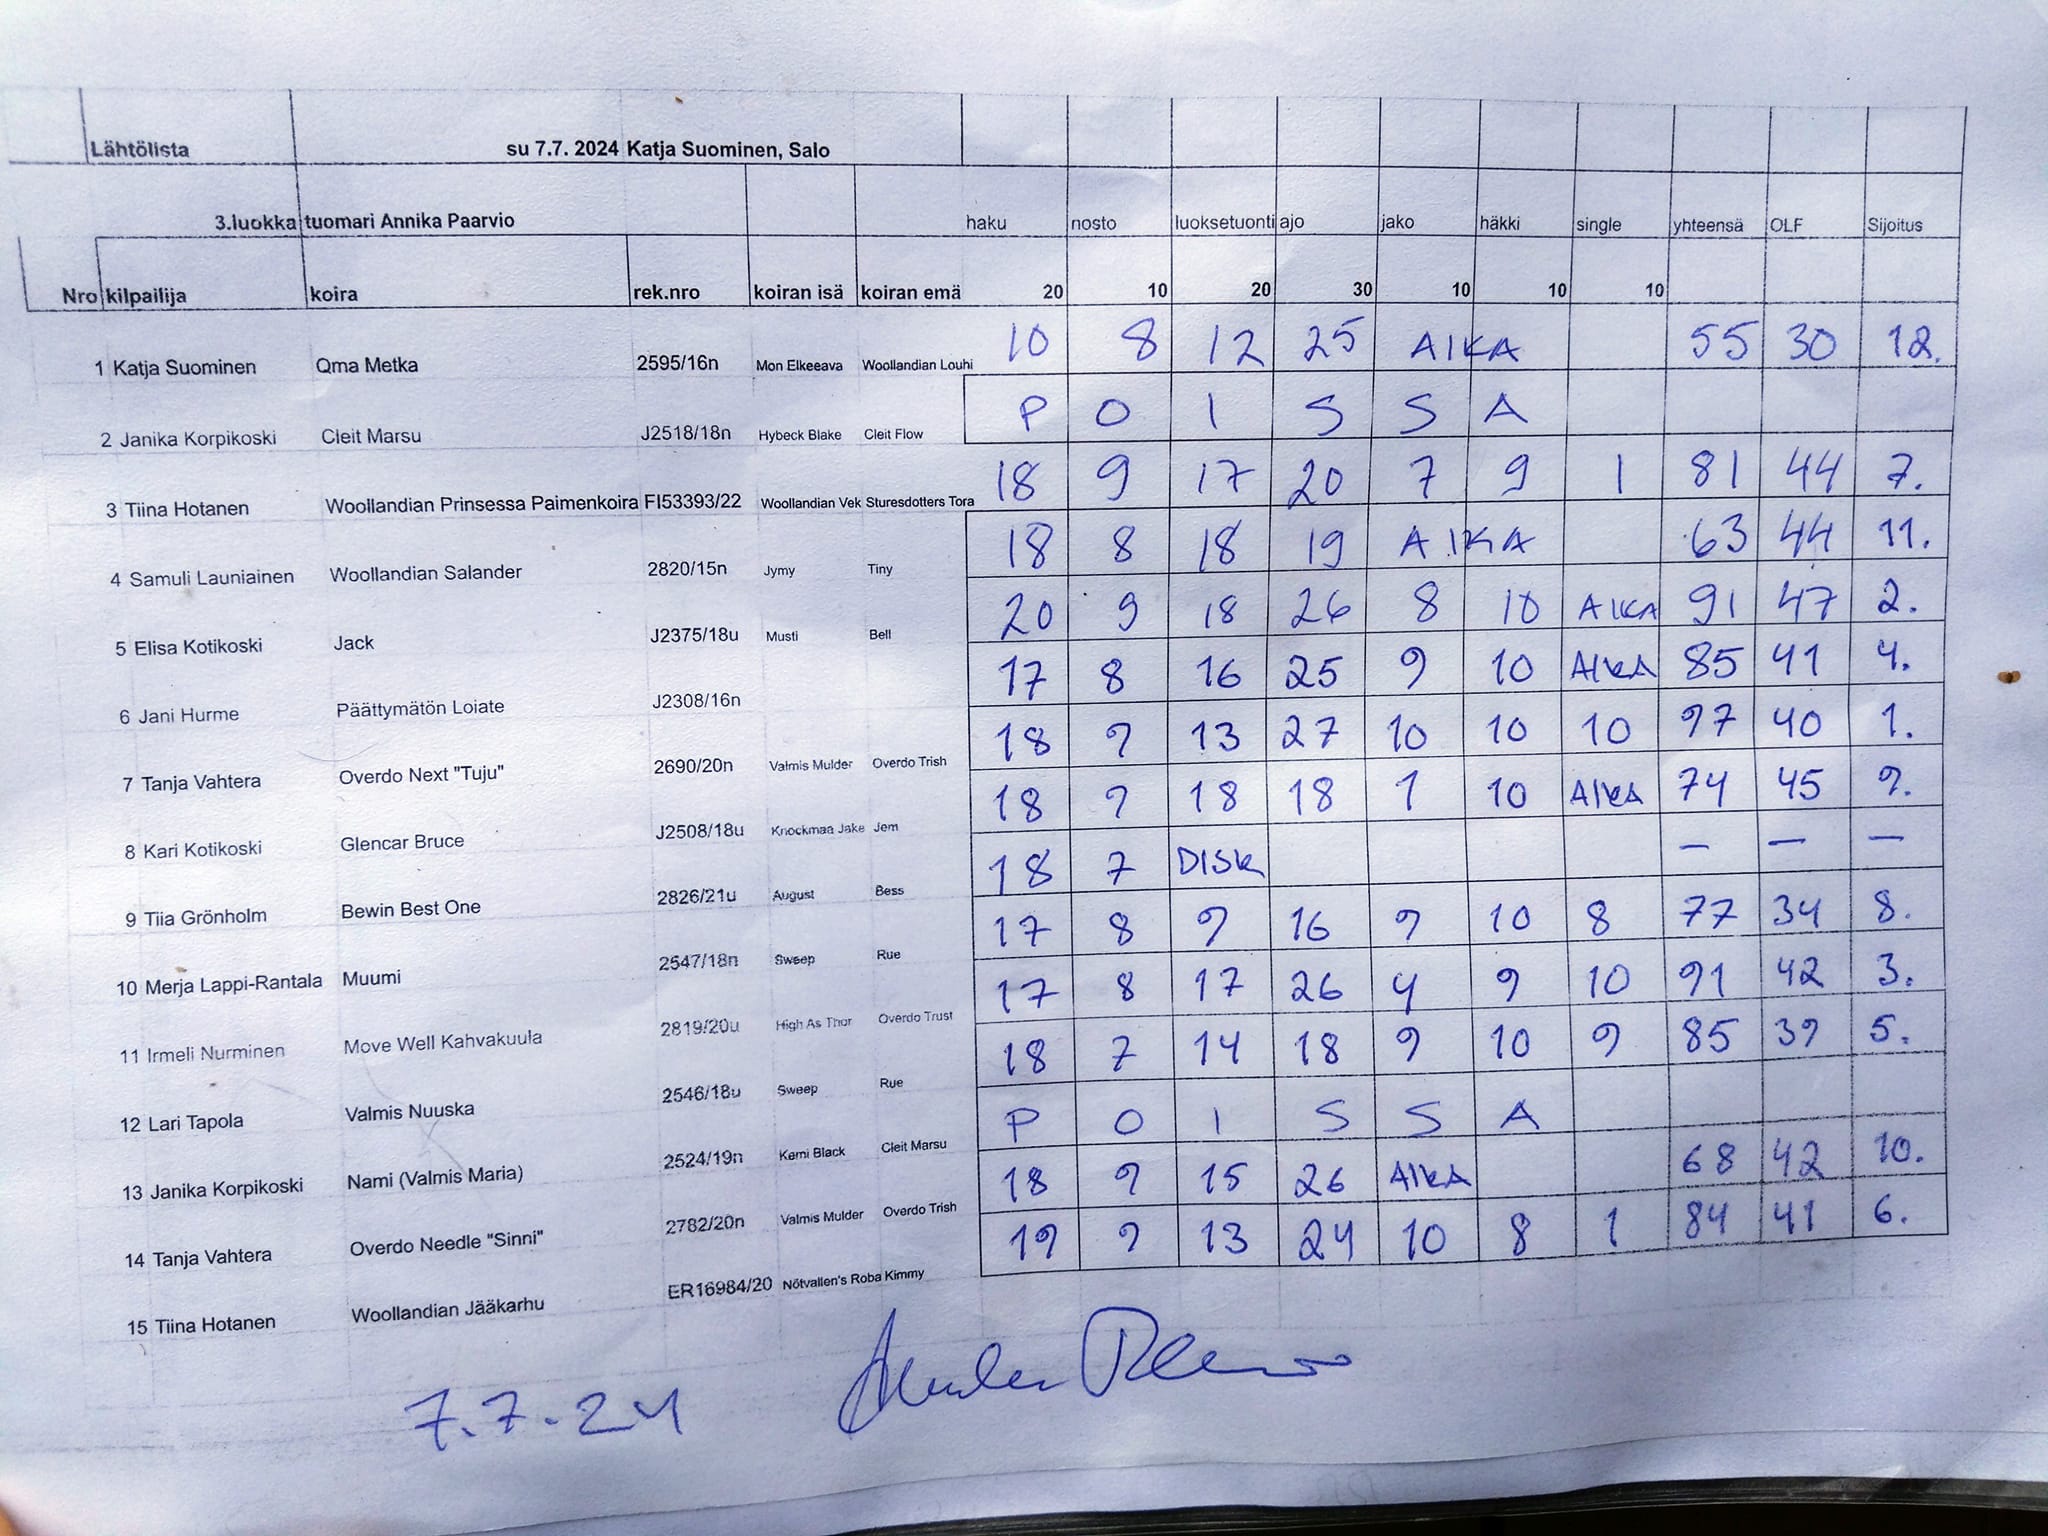 Lähtölista su 7.7. 2024 Katja Suominen, Salo
3.luokka tuomari Annika Paarvio haku nosto luoksetuonti ajo jako häkki single yhteensä OLF Sijoitus
Nro kilpailija koira rek.nro koiran isä koiran emä 20 10 20 30 10 10 10
1 Katja Suominen Qma Metka 2595/16n Mon Elkeeava Woollandian Louhi 10 8 12 25 AIKA 55 30 12.
2 Janika Korpikoski Cleit Marsu J2518/18n Hybeck Blake Cleit Flow P O I S S A
3 Tiina Hotanen Woollandian Prinsessa Paimenkoira FI53393/22 Woollandian Vek Sturesdotters Tora 18 9 17 20 7 9 1 81 44 7.
4 Samuli Launiainen Woollandian Salander 2820/15n Jymy Tiny 18 8 18 19 AIKA 63 44 11.
5 Elisa Kotikoski Jack J2375/18u Musti Bell 20 9 18 26 8 10 AIKA 91 47 2.
6 Jani Hurme Päättymätön Loiate J2308/16n 17 8 16 25 9 10 AIKA 85 41 4.
7 Tanja Vahtera Overdo Next "Tuju" 2690/20n Valmis Mulder Overdo Trish 18 9 13 27 10 10 10 97 40 1.
8 Kari Kotikoski Glencar Bruce J2508/18u Knockmaa Jake Jem 18 9 18 18 1 10 AIKA 74 45 9.
9 Tiia Grönholm Bewin Best One 2826/21u August Bess 18 7 DISK — — —
10 Merja Lappi-Rantala Muumi 2547/18n Sweep Rue 17 8 9 16 9 10 8 77 34 8.
11 Irmeli Nurminen Move Well Kahvakuula 2819/20u High As Thor Overdo Trust 17 8 17 26 4 9 10 91 42 3.
12 Lari Tapola Valmis Nuuska 2546/18u Sweep Rue 18 7 14 18 9 10 9 85 39 5.
13 Janika Korpikoski Nami (Valmis Maria) 2524/19n Kemi Black Cleit Marsu P O I S S A
14 Tanja Vahtera Overdo Needle "Sinni" 2782/20n Valmis Mulder Overdo Trish 18 9 15 26 AIKA 68 42 10.
15 Tiina Hotanen Woollandian Jääkarhu ER16984/20 Nötvallen's Roba Kimmy 19 9 13 24 10 8 1 84 41 6.
7.7.24